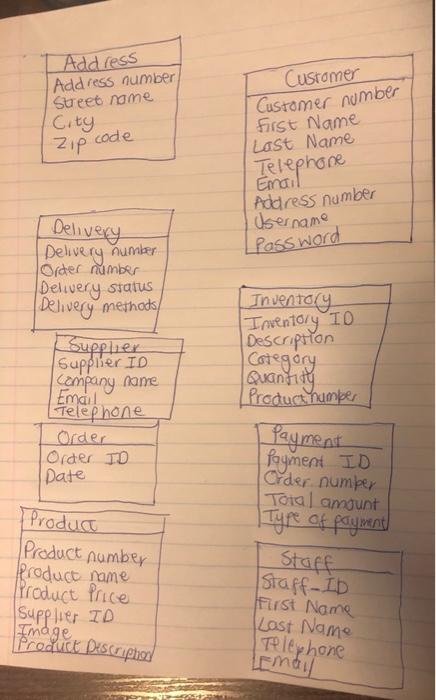 Address
Address number
Street name
City
Zip code
Customer
Customer number
First Name
Last Name
Telephone
Email
Address number
Username
Password
Delivery
Delivery number
Order number
Delivery status
Delivery methods
Inventory
Inventory ID
Description
Category
Quantity
Product number
Supplier
Supplier ID
Company name
Email
Telephone
Order
Order ID
Date
Payment
Payment ID
Order number
Total amount
Type of payment
Product
Product number
Product name
Product Price
Supplier ID
Image
Product Description
Staff
Staff-ID
First Name
Last Name
Telephone
Email